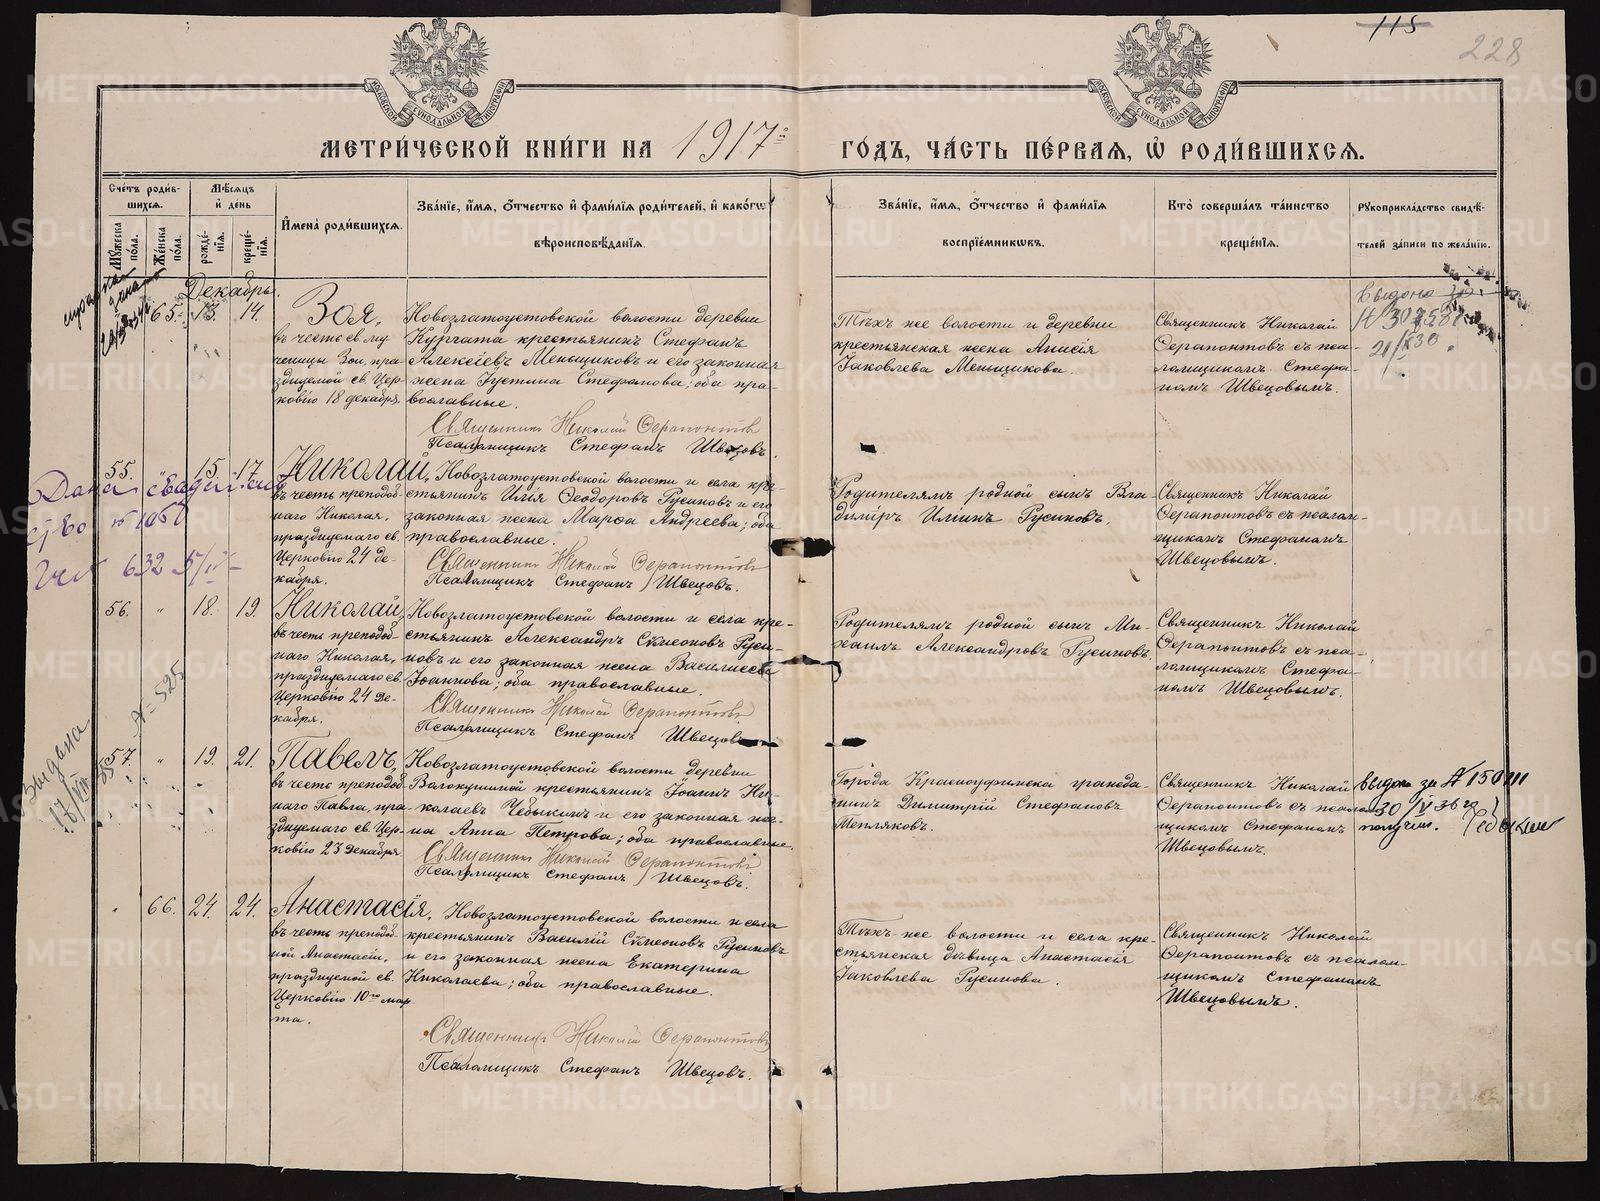 115
228
МЕТРИ́ЧЕСКОЙ КНИ́ГИ НА 1917 ГО́ДЪ, ЧА́СТЬ ПЕ́РВАЯ, Ѡ РОДИ́ВШИХСЯ.
Сче́тъ роди́в-
шихся.
Мѣ́сяцъ
и҆ день
Му́жеска
по́ла.
Же́нска
по́ла.
рожде́-
нїя.
креще́-
нїя.
И҆мена̀ роди́вшихся.
Зва́нїе, и҆́мя, ѻ҆́тчество и҆ фами́лїя роди́телей, и҆ како́гѡ
вѣроисповѣ́данїя.
Зва́нїе, и҆́мя, ѻ҆́тчество и҆ фами́лїя
воспрїе́мниковъ.
Кто̀ соверша́лъ та́инство
креще́нїя.
Рукоприкла́дство свидѣ́-
телей за́писи по жела́нїю.
Декабрь.
65. 13. 14.
Зоя,
въ честь св. му-
ченицы Зои, пра-
зднуемой св. Цер-
ковію 18 декабря.
Новозлатоустовской волости деревни
Кургата крестьянинъ Стефанъ
Алексіевъ Меньщиковъ и его законная
жена Іустина Стефанова; оба пра-
вославные.
Священникъ Николай Ѳерапонтовъ
Псаломщикъ Стефанъ Швецовъ.
Тѣхъ же волости и деревни
крестьянская жена Анисія
Іаковлева Меньщикова.
Священникъ Николай
Ѳерапонтовъ съ пса-
ломщикомъ Стефа-
номъ Швецовымъ.
Выдано
55. " 15. 17.
Дана свидетель
ст-во № 1050
632
Николай,
въ честь преподоб-
наго Николая,
празднуемаго св.
Церковію 24 де-
кабря.
Новозлатоустовской волости и села кре-
стьянинъ Илія Ѳеодоровъ Русиновъ и его
законная жена Марѳа Андреева; оба
православные.
Священникъ Николай Ѳерапонтовъ
Псаломщикъ Стефанъ Швецовъ.
Родителямъ родной сынъ Вла-
диміръ Иліинъ Русиновъ.
Священникъ Николай
Ѳерапонтовъ съ псалом-
щикомъ Стефаномъ
Швецовымъ.
56. " 18. 19.
Николай,
въ честь преподоб-
наго Николая,
празднуемаго св.
Церковію 24 де-
кабря.
Новозлатоустовской волости и села кре-
стьянинъ Александръ Сѵмеоновъ Руси-
новъ и его законная жена Василисса
Іоаннова; оба православные.
Священникъ Николай Ѳерапонтовъ
Псаломщикъ Стефанъ Швецовъ
Родителямъ родной сынъ Ми-
хаилъ Александровъ Русиновъ.
Священникъ Николай
Ѳерапонтовъ съ пса-
ломщикомъ Стефа-
номъ Швецовымъ.
№ 525
Выдана
57. " 19. 21.
Павелъ,
въ честь преподоб-
наго Павла, пра-
зднуемаго св. Цер-
ковію 23 декабря
Новозлатоустовской волости деревни
Волокушиной крестьянинъ Іоаннъ Ни-
колаевъ Чебыкинъ и его законная же-
на Анна Петрова; оба православные.
Священникъ Николай Ѳерапонтовъ
Псаломщикъ Стефанъ Швецовъ.
Города Красноуфимска гражда-
нинъ Димитрій Стефановъ
Тепляковъ.
Священникъ Николай
Ѳерапонтовъ съ псалом-
щикомъ Стефаномъ
Швецовымъ.
выдан за № 150
получил.
" 66. 24. 24.
Анастасія,
въ честь преподоб-
ной Анастасіи,
празднуемой св.
Церковію 10го мар-
та.
Новозлатоустовской волости и села
крестьянинъ Василій Сѵмеоновъ Русиновъ
и его законная жена Екатерина
Николаева; оба православные.
Священникъ Николай Ѳерапонтовъ
Псаломщикъ Стефанъ Швецовъ.
Тѣхъ-же волости и села кре-
стьянская дѣвица Анастасія
Іаковлева Русинова.
Священникъ Николай
Ѳерапонтовъ съ псалом-
щикомъ Стефаномъ
Швецовымъ.
METRIKI.GASO-URAL.RU